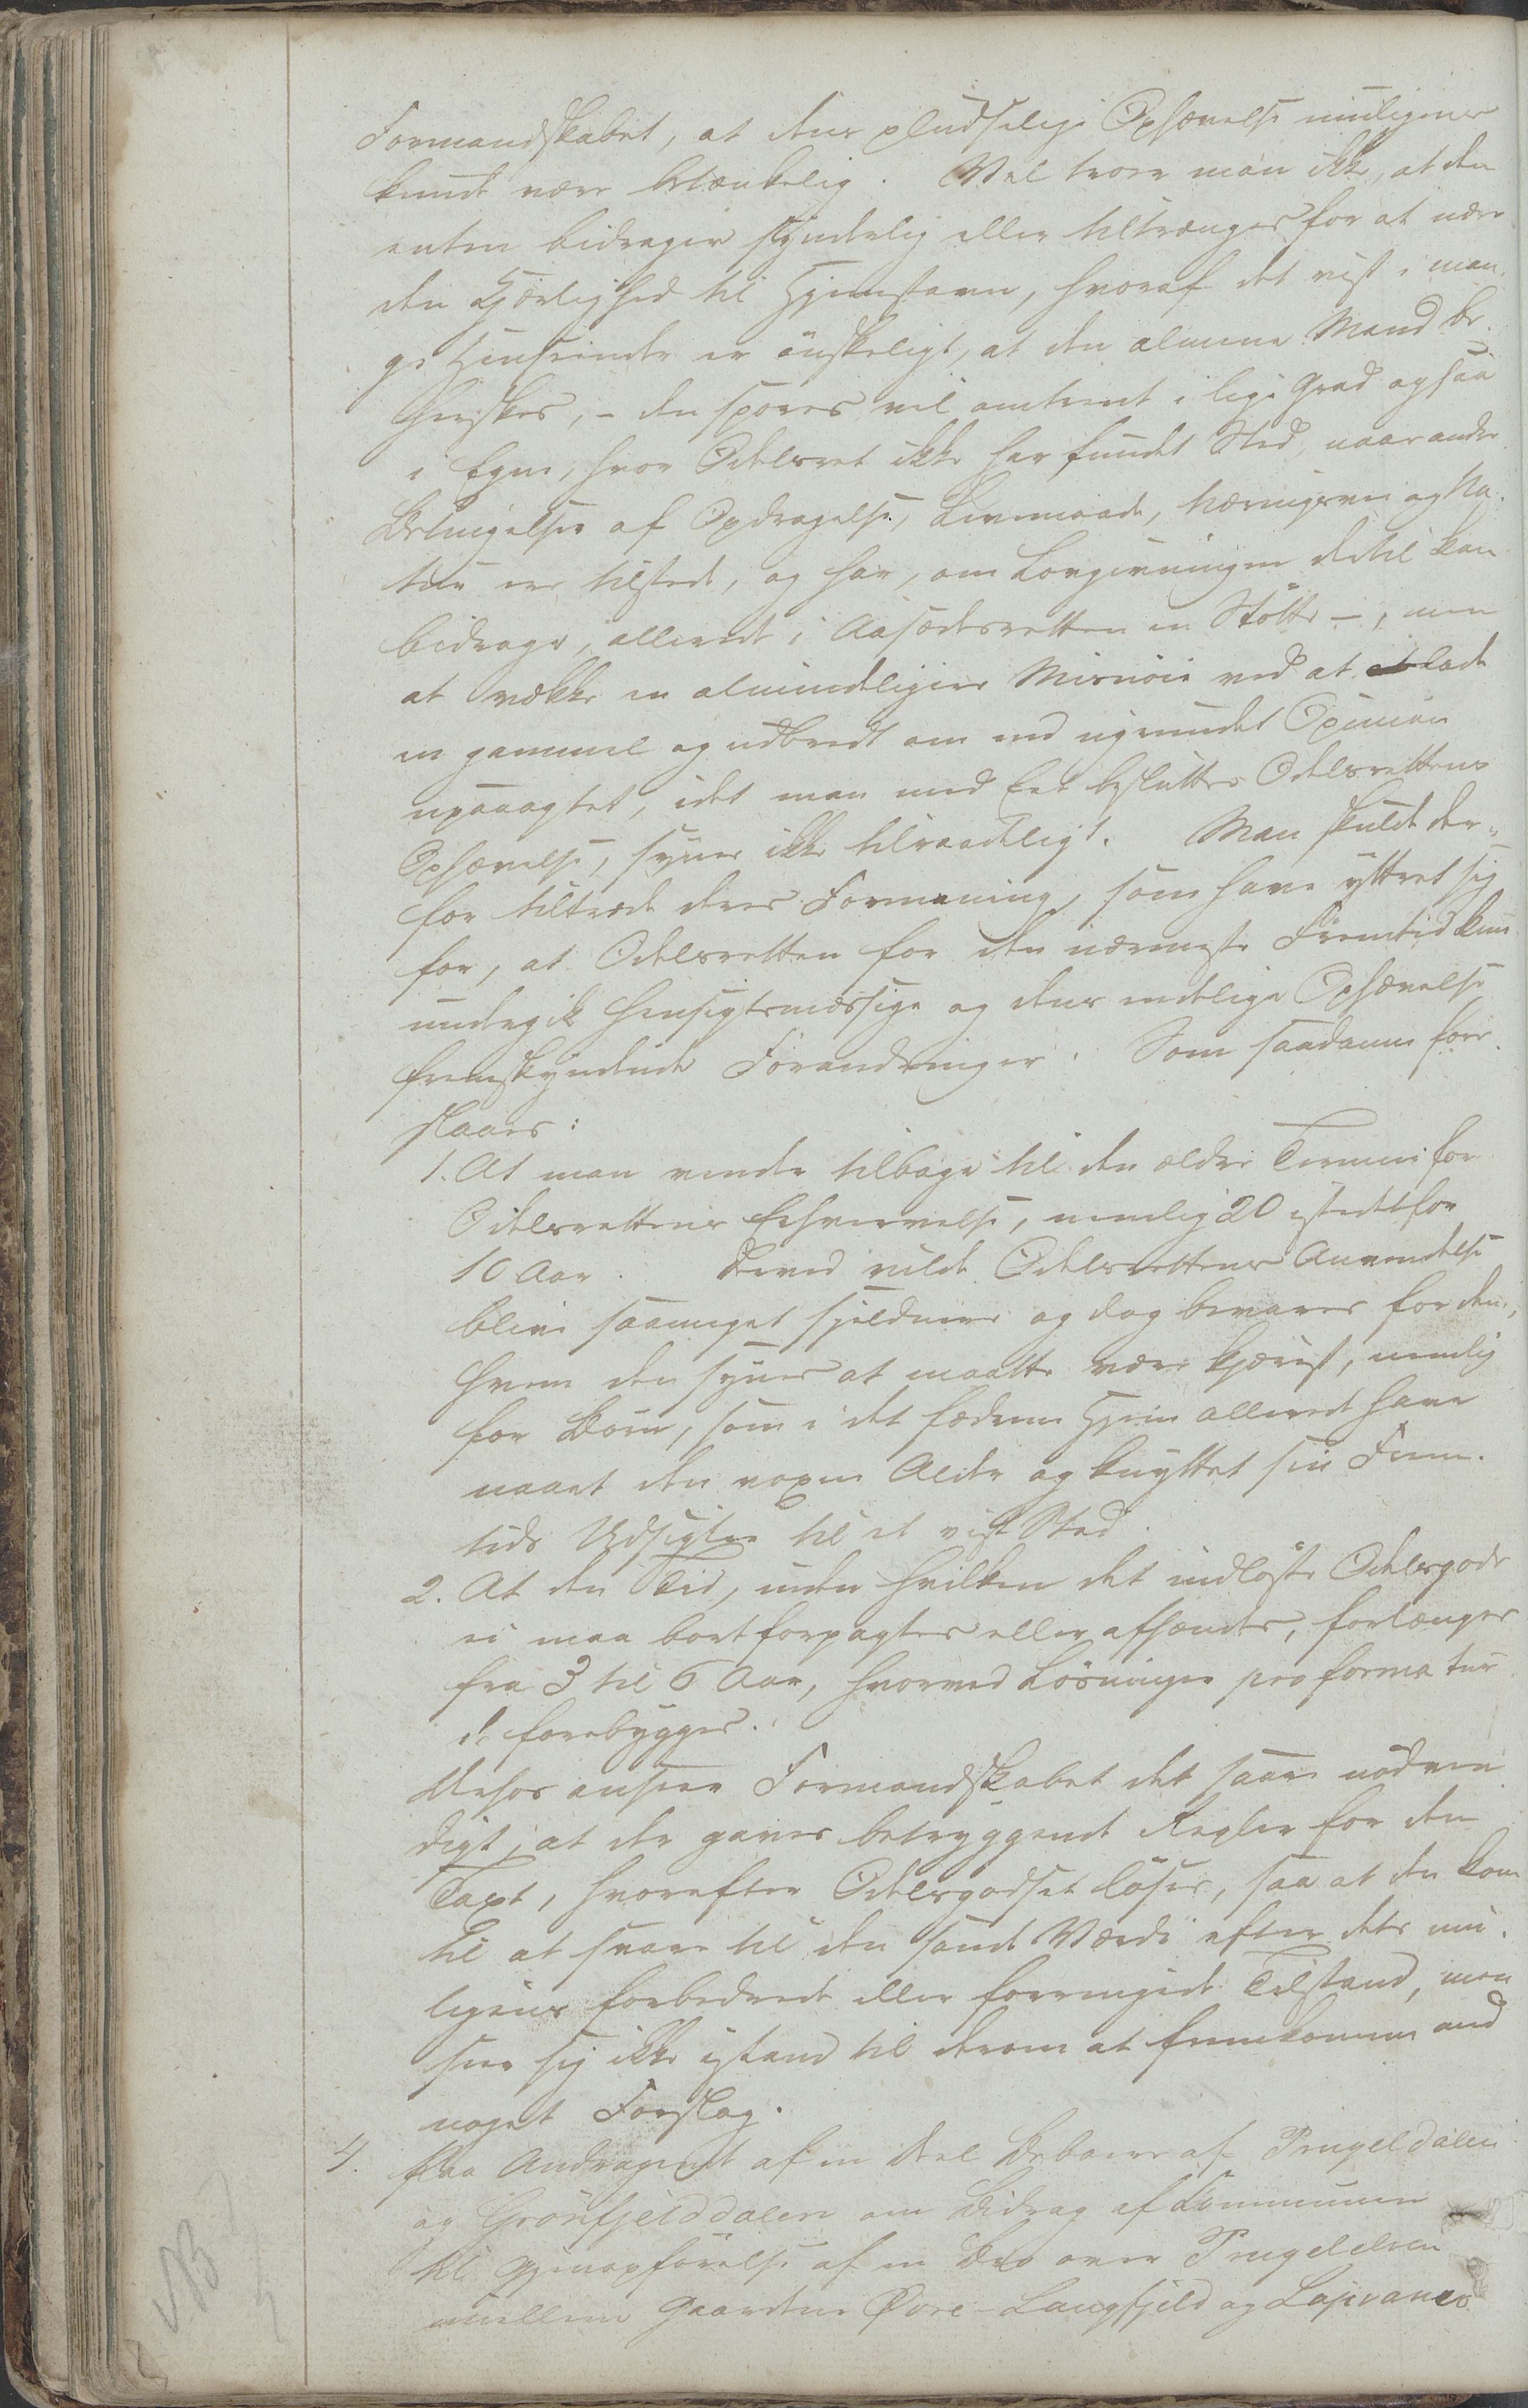 Formandskabet, at dens pludselige Ophævelse muligens
kunde være betænkelig. Vel troer man ikke, at den
enten bidrager synderlig eller tiltrænges for at nære
den Kjærlighed til Hjemstavn, hvoraf det vist i man¬
ge Henseender er önskeligt, at den almene Mand be¬
herskes, – den spores vel omtrent i lige Grad ogsaa
i Egne, hvor Odelsret ikke har fundet Sted, naar andre
Betingelser af Opdragelse, Levemaade, Næringsvei og Na¬
tur ere tilstede, og har, om Lovgivningen dertil kan
bidrage, allerede i Aasædesretten en Stötte –, men
at vække en almindeligere Misnöie ved at lade
en gammel og udbredt om end ugrundet Opinion
upaaagtet, idet man med Eet beslutter Odelsrettens
Ophævelse, synes ikke tilraadeligt. Man skulde der¬
for tiltræde deres Formening, som have yttret sig
for, at Odelsretten for den nærmeste Fremtid kun
undergik hensigtsmæssige og dens endelige Ophævelse
fremskyndende Forandringer. Som saadanne fore¬
slaaes:
1. At man vender tilbage til den ældre Termin for
Odelsrettens Erhvervelse, nemlig 20 istedetfor
10 Aar. Derved vilde Odelsrettens Anvendelse
blive saameget sjeldnere og dog bevares for dem,
hvem den synes at maatte være kjærest, nemlig
for Börn, som i det fædrene Hjem allerede have
naaet den voxne Alder og knyttet sin Frem¬
tids Udsigter til et vist Sted.
2. At den Tid, inden hvilken det indlöste Odelsgods
ei maa bortforpagtes eller afhændes, forlænges
fra 3 til 6 Aar, hvorved Lösninger pro forma tur¬
de forebygges.
Dehos anseer Formandskabet det saare nödven¬
digt, at der gaves betryggende Regler for den
Taxt, hvorefter Odelsgodset löses, saa at den kom
til at svare til den sande Værdi efter dets mu¬
ligens forbedrede eller forringede Tilstand, men
seer sig ikke istand til derom at fremkomme med
noget Forslag.
4. Paa Andragende af en Deel Beboere af Prugeldalen
og Grönfjelddalen om Bidrag af Communen
til Gjenopförelse af en Bro over Prugelelven
mellem Gaardene Övre-Langfjeld og Lapvanes